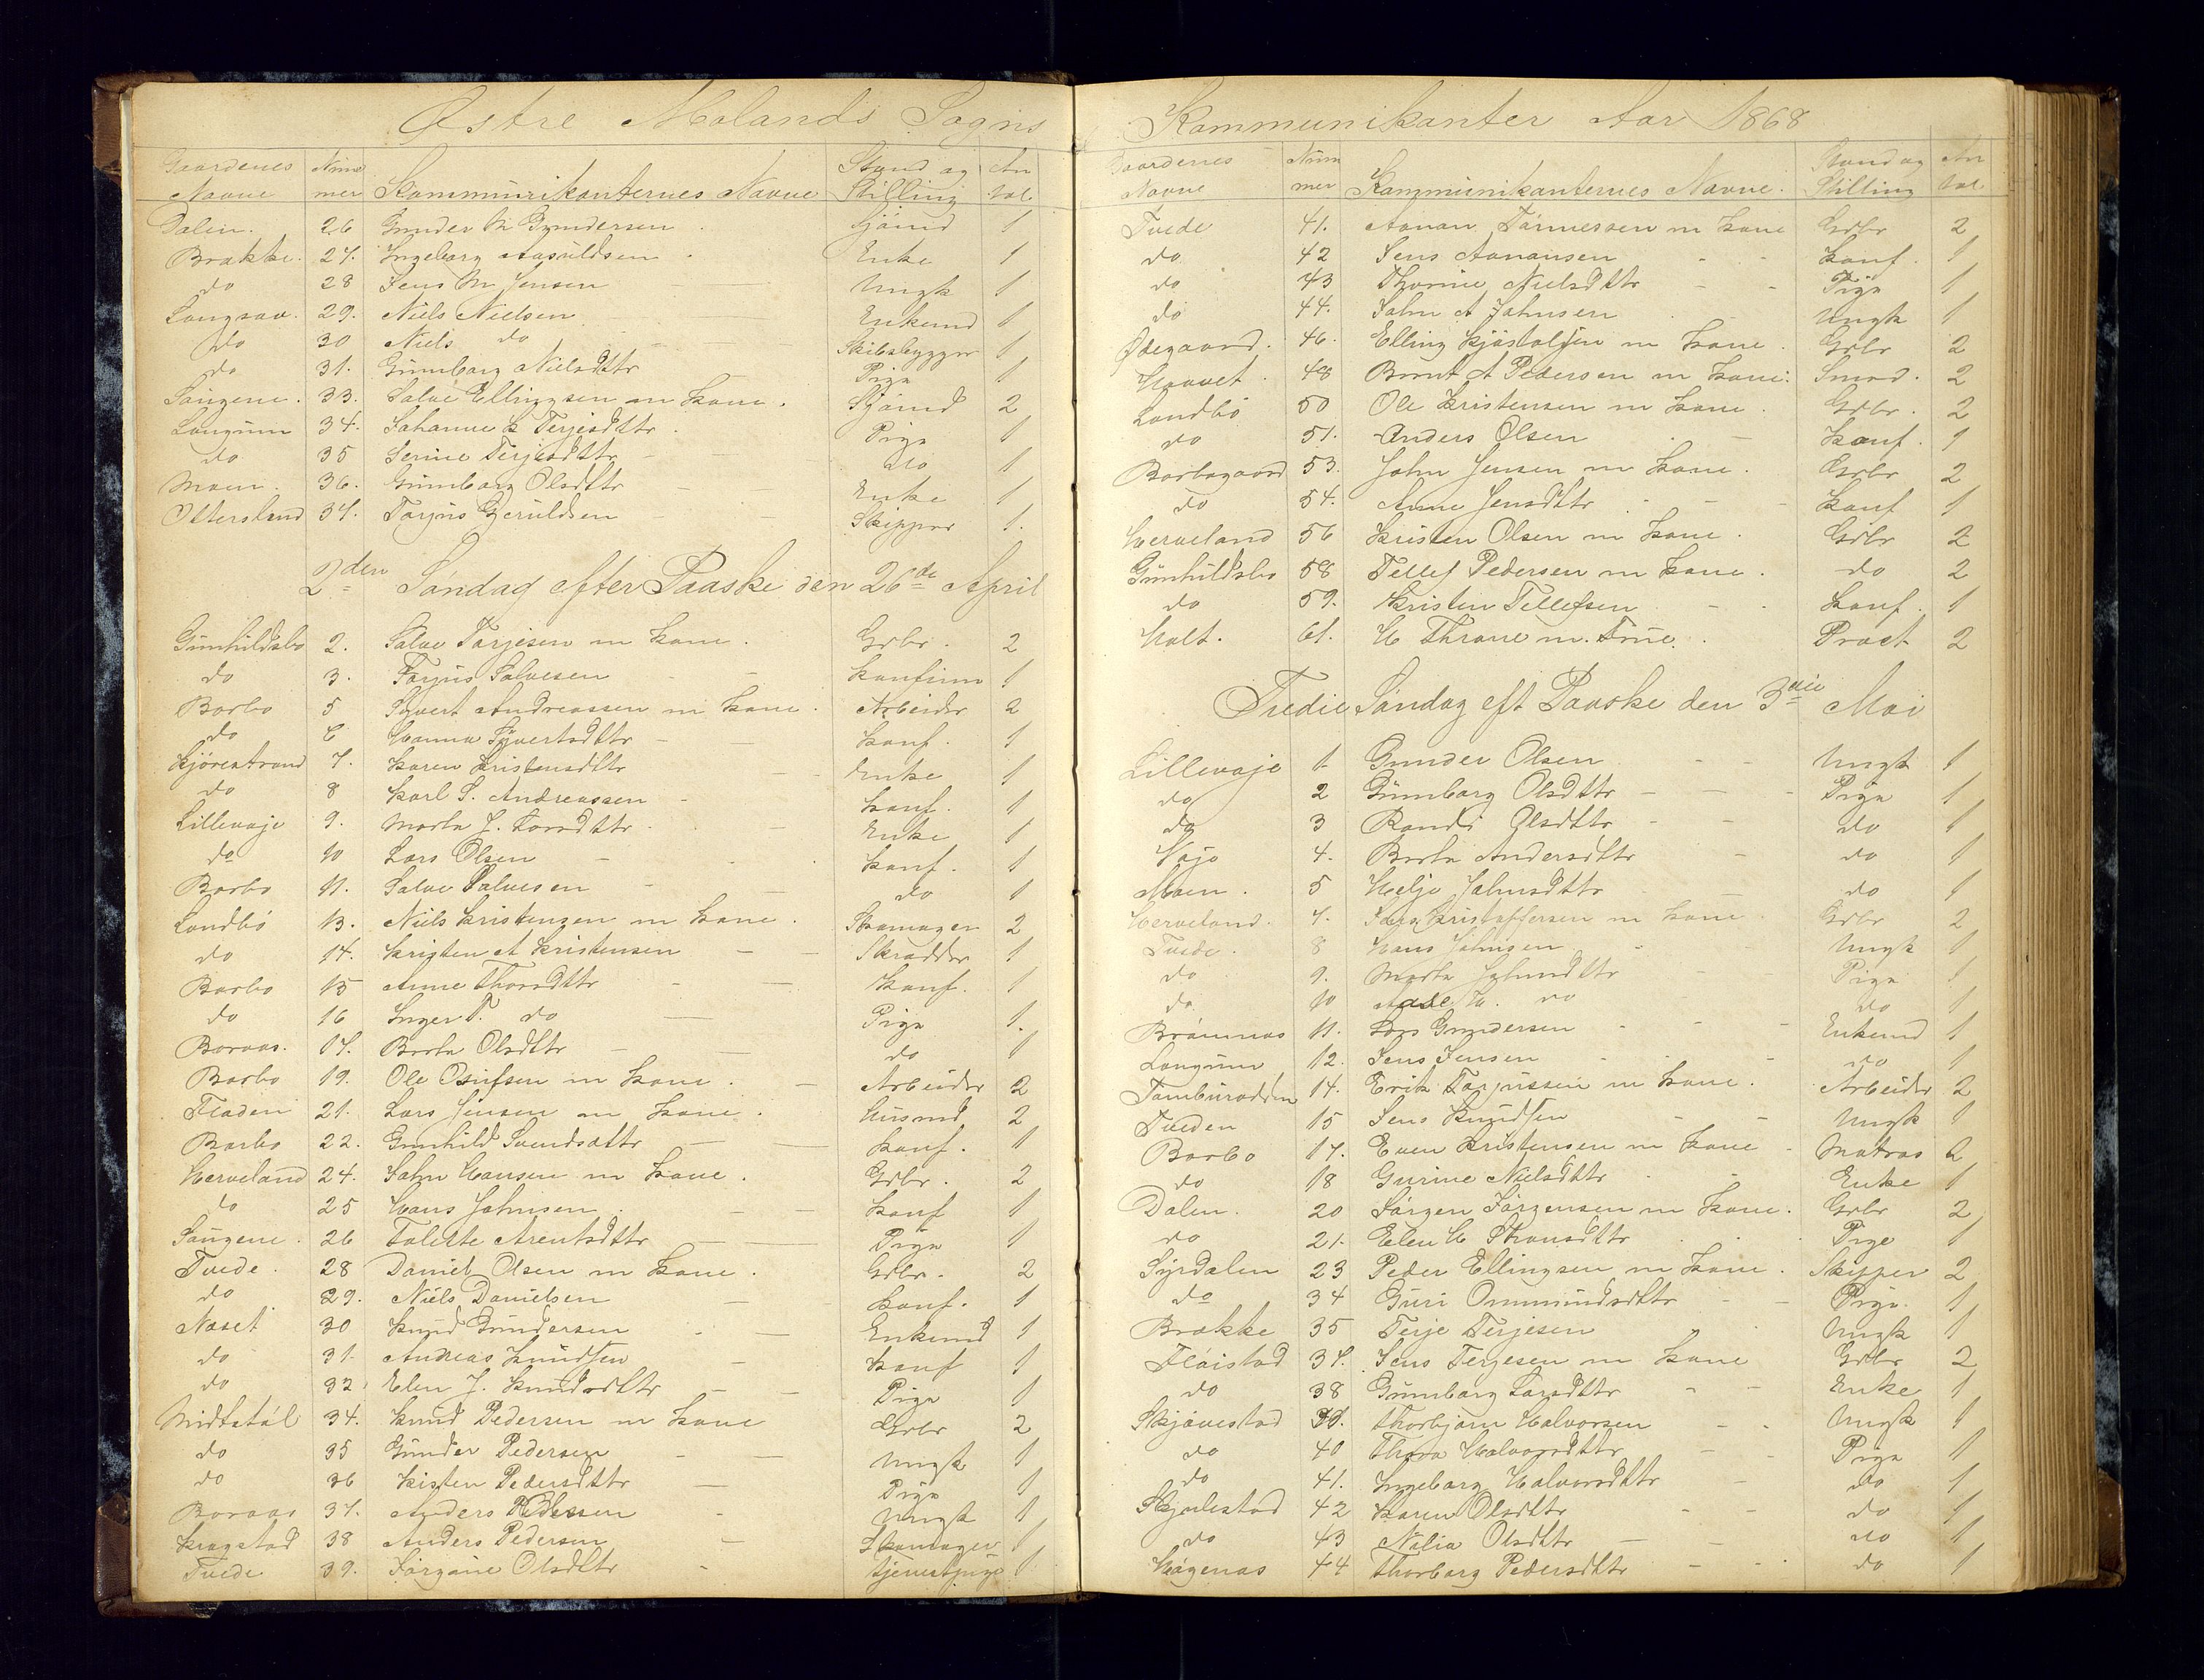 Østre Molands Sogns
Gaardenes Navne Num mer Kommunikanternes Navne Stand og Stilling An tal
Dalen. 26 Gunder M Gundersen Sjómd 1
Brække. 27. Ingeborg Aasuldsen Enke 1
do 28 Jens M Jensen Ungk 1
Langsav. 29. Niels Nielsen Enkemd 1
do 30 Niels do Skibsbygger 1
do 31. Gunnborg Nielsdttr Pige 1
Sóugene. 33. Salve Ellingsen m Kone. Sjómd 2
Longum 34. Johanne K Terjesdttr Pige 1
do 35 Serine Terjesdttr do 1
Moen. 36. Gunnborg Olsdttr Enke 1
Ottersland 37. Torjus Gjeruldsen Skipper 1.
2den Sóndag efter Paaske den 26de April
Gunhildsbo 2. Salve Torjesen m Kone. Grbr. 2
do 3. Torjus Salvesen Konfirm 1
Borbo 5 Syvert Andreassen m Kone. Arbeider 2
do 6 Hanna Syvertsdttr Konf. 1
Kjórestrand 7. Karen Kristensdttr Enke 1
do 8 Karl S. Andreassen Konf. 1
Lillevaje 9. Marte J. Larsdttr Enke 1
do 10 Lars Olsen Konf. 1
Borbo 11. Salve Salvesen do 1
Landbó 13. Niels Kristensen m Kone. Skomager 2
do 14. Kristen A Kristensen Skrædder 1
Borbo 15 Anne Thorsdttr Konf. 1
do 16 Inger T. do Pige 1.
Boraas. 17. Berte Olsdttr do 1
Borbo 19. Ole Osufsen m Kone. Arbeider 2
Fladen 21. Lars Jensen m Kone. Husmd 2
Borbo 22. Gunhild Svendsdttr Konf. 1
Herveland 24. John Hansen m Kone. Grbr. 2
do 25 Hans Johnsen Konf 1
Sóugene. 26 Taleste Arentsdttr Pige 1
Tvede. 28 Daniel Olsen m Kone. Grbr. 2
do 29. Niels Danielsen Konf. 1
Næset 30 Knud Gundersen Enkemd 1
do 31. Andreas Knudsen Konf 1
do 32 Elen J. Knudsdttr Pige 1
Midtstól 34. Knud Pedersen m Kone Grbr 2
do 35 Gunder Pedersen Ungk 1
do 36 Kisten Pedersdttr Pige 1
Boraas 37. Anders Pedersen Ungk 1
Kragstad 38 Anders Pedersen Skomager 1
Tvede 39. Jórgine Olsdttr Tjenestpige 1
Kommunikanter Aar 1868
Gaardenes Navne Num mer Kommunikanternes Navne. Stand og Stilling An tal
Tvede 41. Aanon Tormessen m Kone Grbr 2
do 42 Jens Aanonsen Konf. 1
do 43 Thorine Nielsdttr Pige 1
do 44. John A Johnsen Ungk 1
Ødegaard. 46. Elling Kjóstolsen m Kone. Grbr 2
Hovvet. 48 Bernt A Pedersen m Kone. Smed. 2
Landbó 50 Ole Kristensen m Kone. Grbr. 2
do 51. Anders Olsen Konf. 1
Borbogaard 53. John Jensen m Kone. Grbr 2
do 54. Anne Jensdttr Konf 1
Herveland 56 Kristen Olsen m Kone. Grbr 2
Gunhildsbo 58 Tellef Pedersen m Kone. do 2
do 59. Kristen Tellefsen Konf. 1
Holt. 61. H Thrane m. Frue. Prost 2
Tredie Sóndag eft Paaske den 3die Mai
Lillevaje 1 Gunder Olsen Ungk 1
do 2 Gunnborg Olsdttr Pige 1
do 3 Randi Olsdttr do 1
Vaje 4. Berte Andersdttr do 1
Moen. 5 Helje Johnsdttr do 1
Herveland. 7. Lars Kristoffersen m Kone Grbr 2
Tvede. 8 Hans Johnsen Ungk 1
do 9. Marte Johnsdttr Pige 1
do 10 Aase H. do do 1
Brómnæs 11. Lars Gundersen Enkemd 1
Longum 12. Jens Jensen do 1
Tamburodden 14. Erik Torjussen m Kone. Arbeider 2
Tveden 15 Jens Knudsen Ungk 1
Borbo 17. Even Kristensen m Kone Matros 2
do 18 Gurine Nielsdttr Enke 1
Dalen. 20 Jórgen Jórgensen m Kone. Grbr 2
do 21. Elen H Thronsdttr Pige 1
Syrdalen 23 Peder Ellingsen m Kone. Skipper 2
do 34 Guri Ommundsdttr Pige. 1
Brække 35 Terje Terjesen Ungk 1
Flóistad 37. Jens Terjesen m Kone Grbr 2
do 38 Gunnborg Larsdttr Enke 1
Skjóvestad 39. Thorbjórn Halvorsen Ungk 1
do 40 Thora Halvorsdttr Pige 1
do 41. Ingeborg Halvorsdttr do 1
Skjulestad 42 Karen Olsdttr do 1
do 43 Nilia Olsdttr do 1
Hógenæs 44 Thorborg Pedersdttr do 1